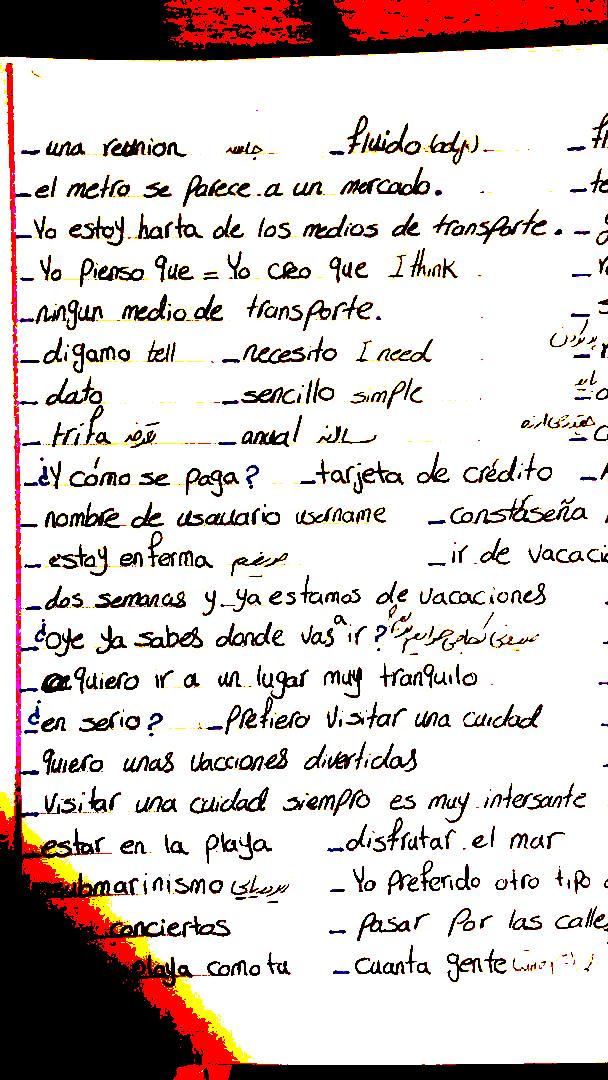 _ una reunion جلسه _ fluido (adj)
_ el metro se parece a un mercado.
_ Yo estoy harta de los medios de transporte.
_ Yo pienso que = Yo creo que I think
_ ningun medio de transporte.
_ digamo tell _ necesito I need
_ dato _ sencillo simple
_ trifa _ anual
_ ¿Y cómo se paga? _ tarjeta de crédito
_ nombre de usauario username _ constáseña
_ estoy enferma مریضم _ ir de vacaci
_ dos semanas y _ ya estamos de vacaciones
_ ¿oye ya sabes donde vas a ir?
_ quiero ir a un lugar muy tranquilo
¿en serio? _ Prefiero visitar una cuidad
_ quiero unas vacciones divertidas
_ visitar una cuidad siempro es muy intersante
_ estar en la playa _ disfrutar el mar
submarinismo _ Yo preferido otro tipo
conciertos _ pasar por las calles
playa como tu _ cuanta gente